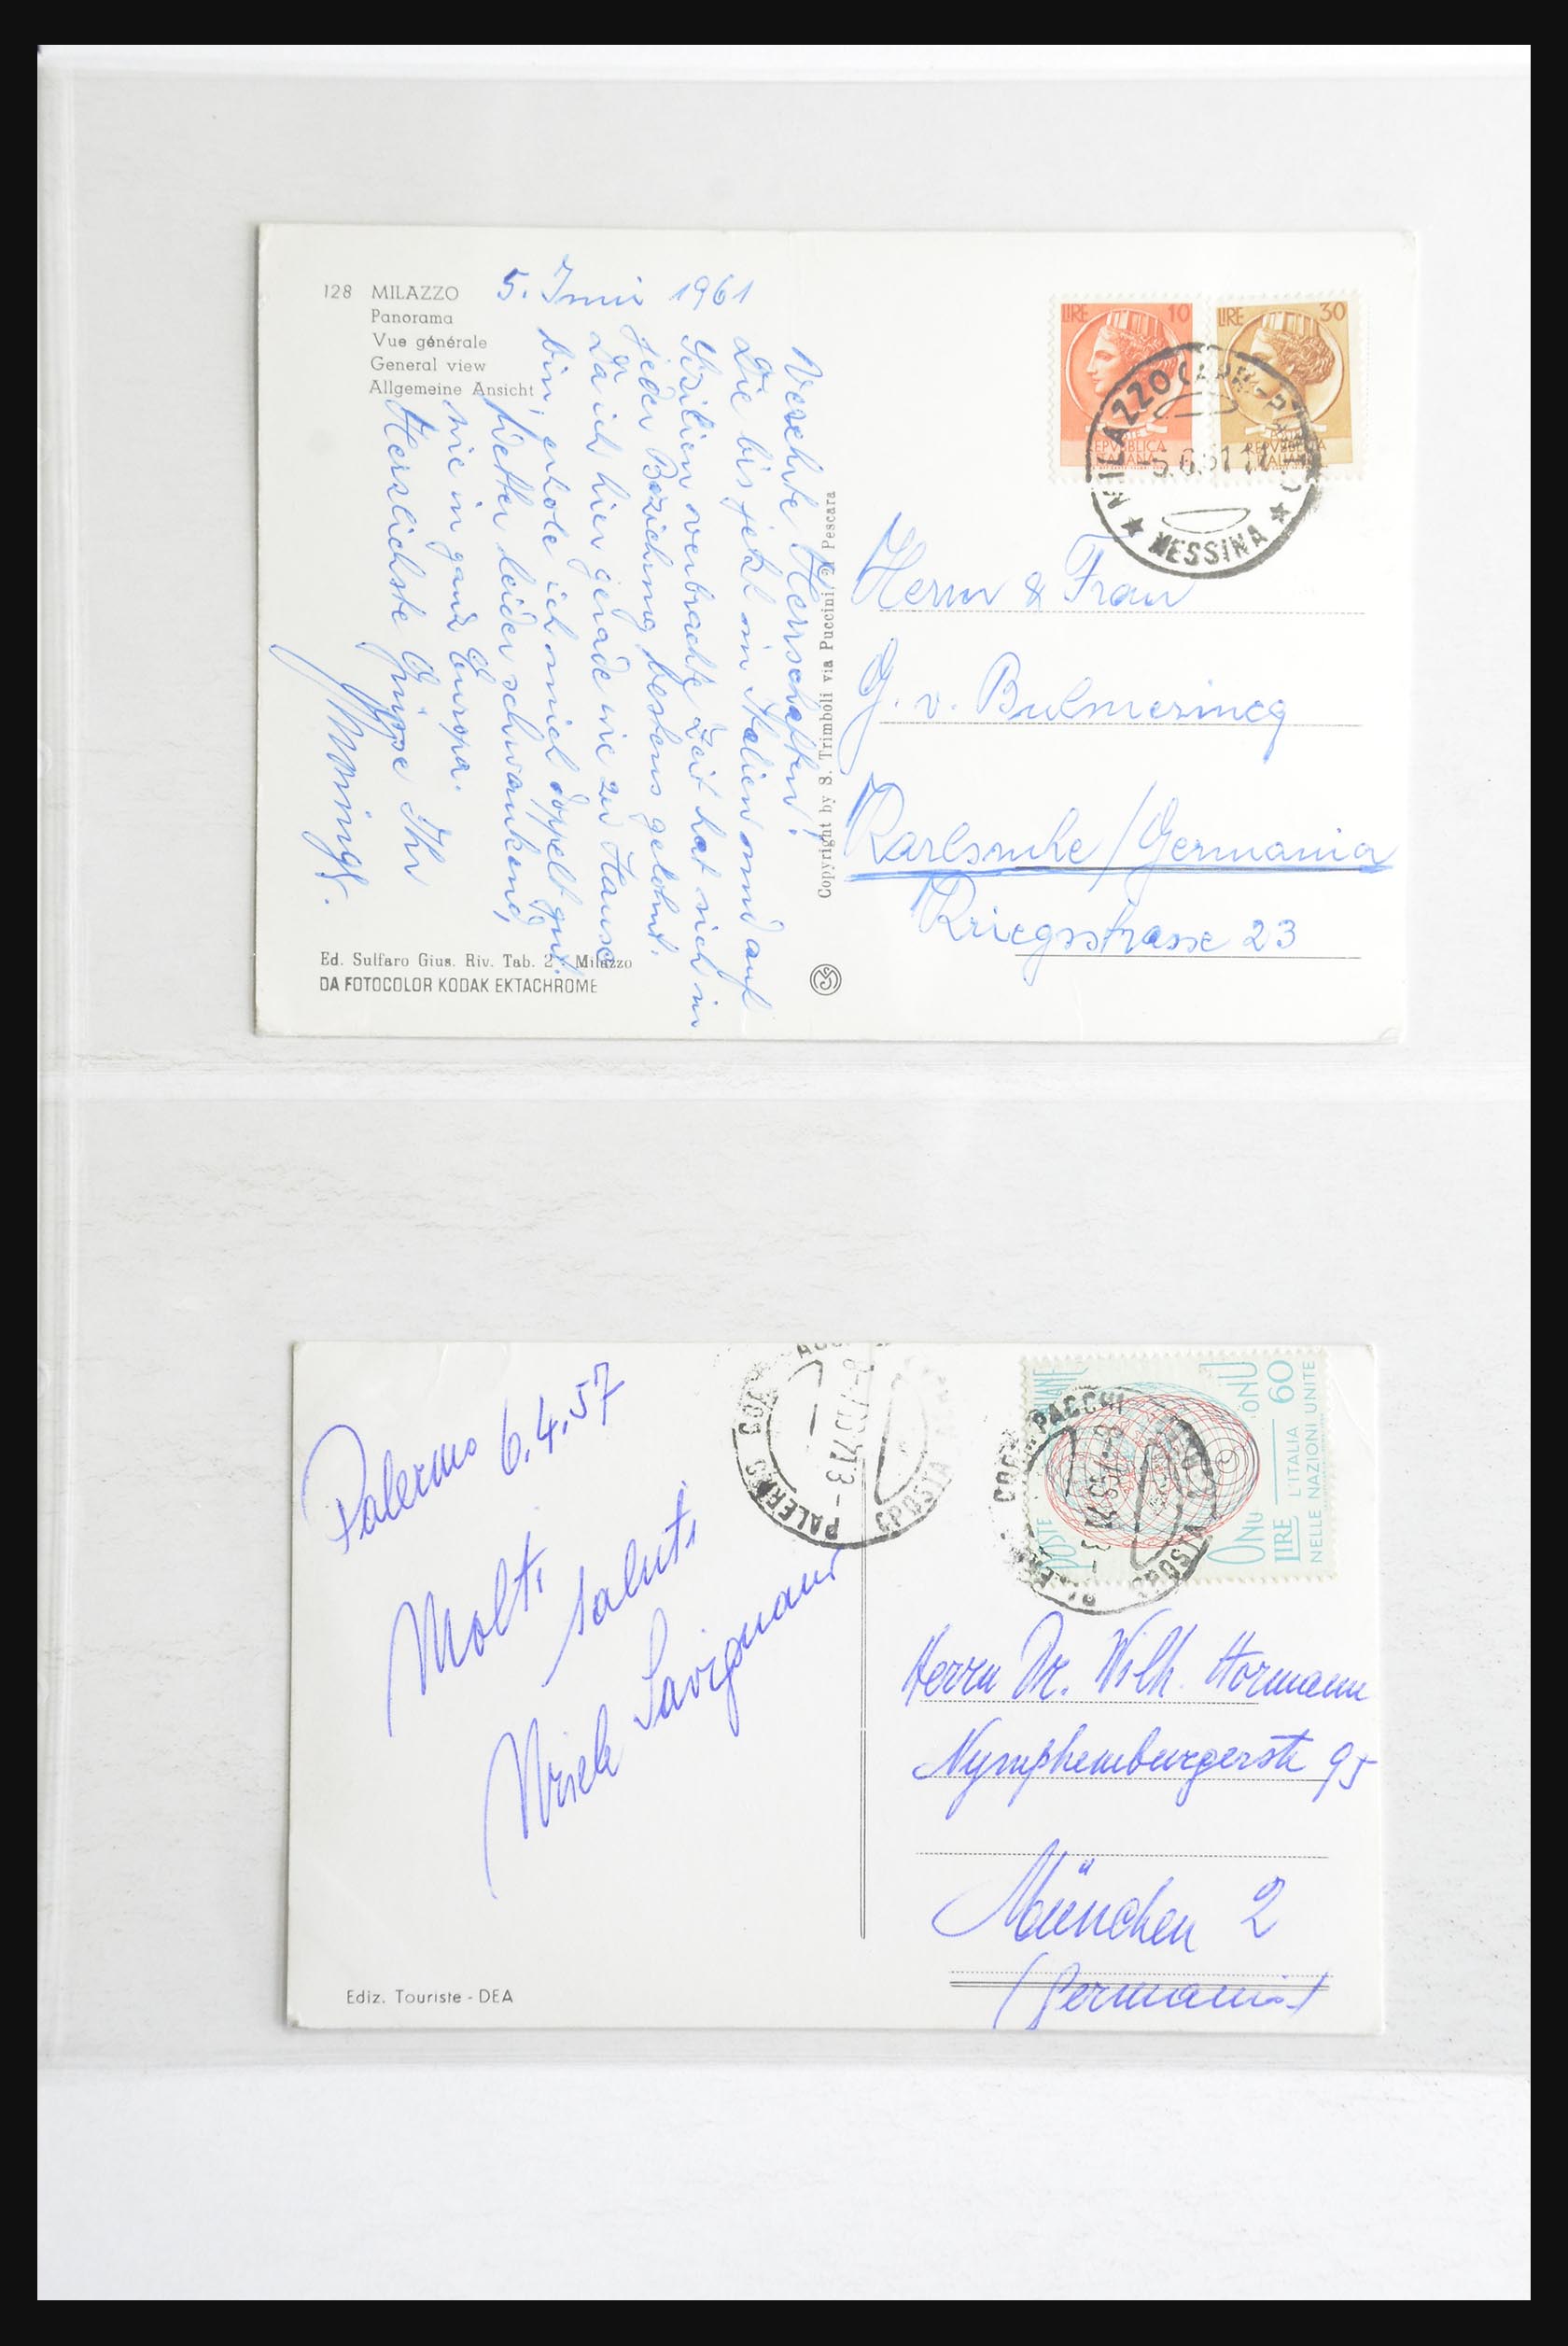 128 MILAZZO
Panorama
Vue générale
General view
Allgemeine Ansicht
5. Juni 1961
Verehrte Herrschaften!
Die bis jetzt in Italien und auf
Sizilien verbrachte Zeit hat sich in
jeder Beziehung bestens gelohnt.
Da ich hier gerade wie zu Hause
bin, erhole ich mich doppelt gut.
Wetter leider schwankend,
wie in ganz Europa.
Herzlichste Grüsse Ihr
Ed. Sulfaro Gius. Riv. Tab. 2 - Milazzo
DA FOTOCOLOR KODAK EKTACHROME
Copyright by S. Trimboli via Puccini, Pescara
LIRE 10
REPVBBLICA
ITALIANA
LIRE 30
REPVBBLICA
ITALIANA
MILAZZO
5.6.61
MESSINA
Herrn & Frau
G. v. Bulmerincq
Karlsruhe / Germania
Kriegsstrasse 23
Palermo 6.4.57
Molti
saluti
Savignano
Ediz. Touriste - DEA
PALERMO
POSTA
POSTE ITALIANE
ONU
LIRE 60
L'ITALIA
NELLE NAZIONI UNITE
PALERMO CORR. PACCHI
POSTA
Herrn Dr. Wilh. Hormann
Nymphenburgerstr 95
München 2
(Germania)